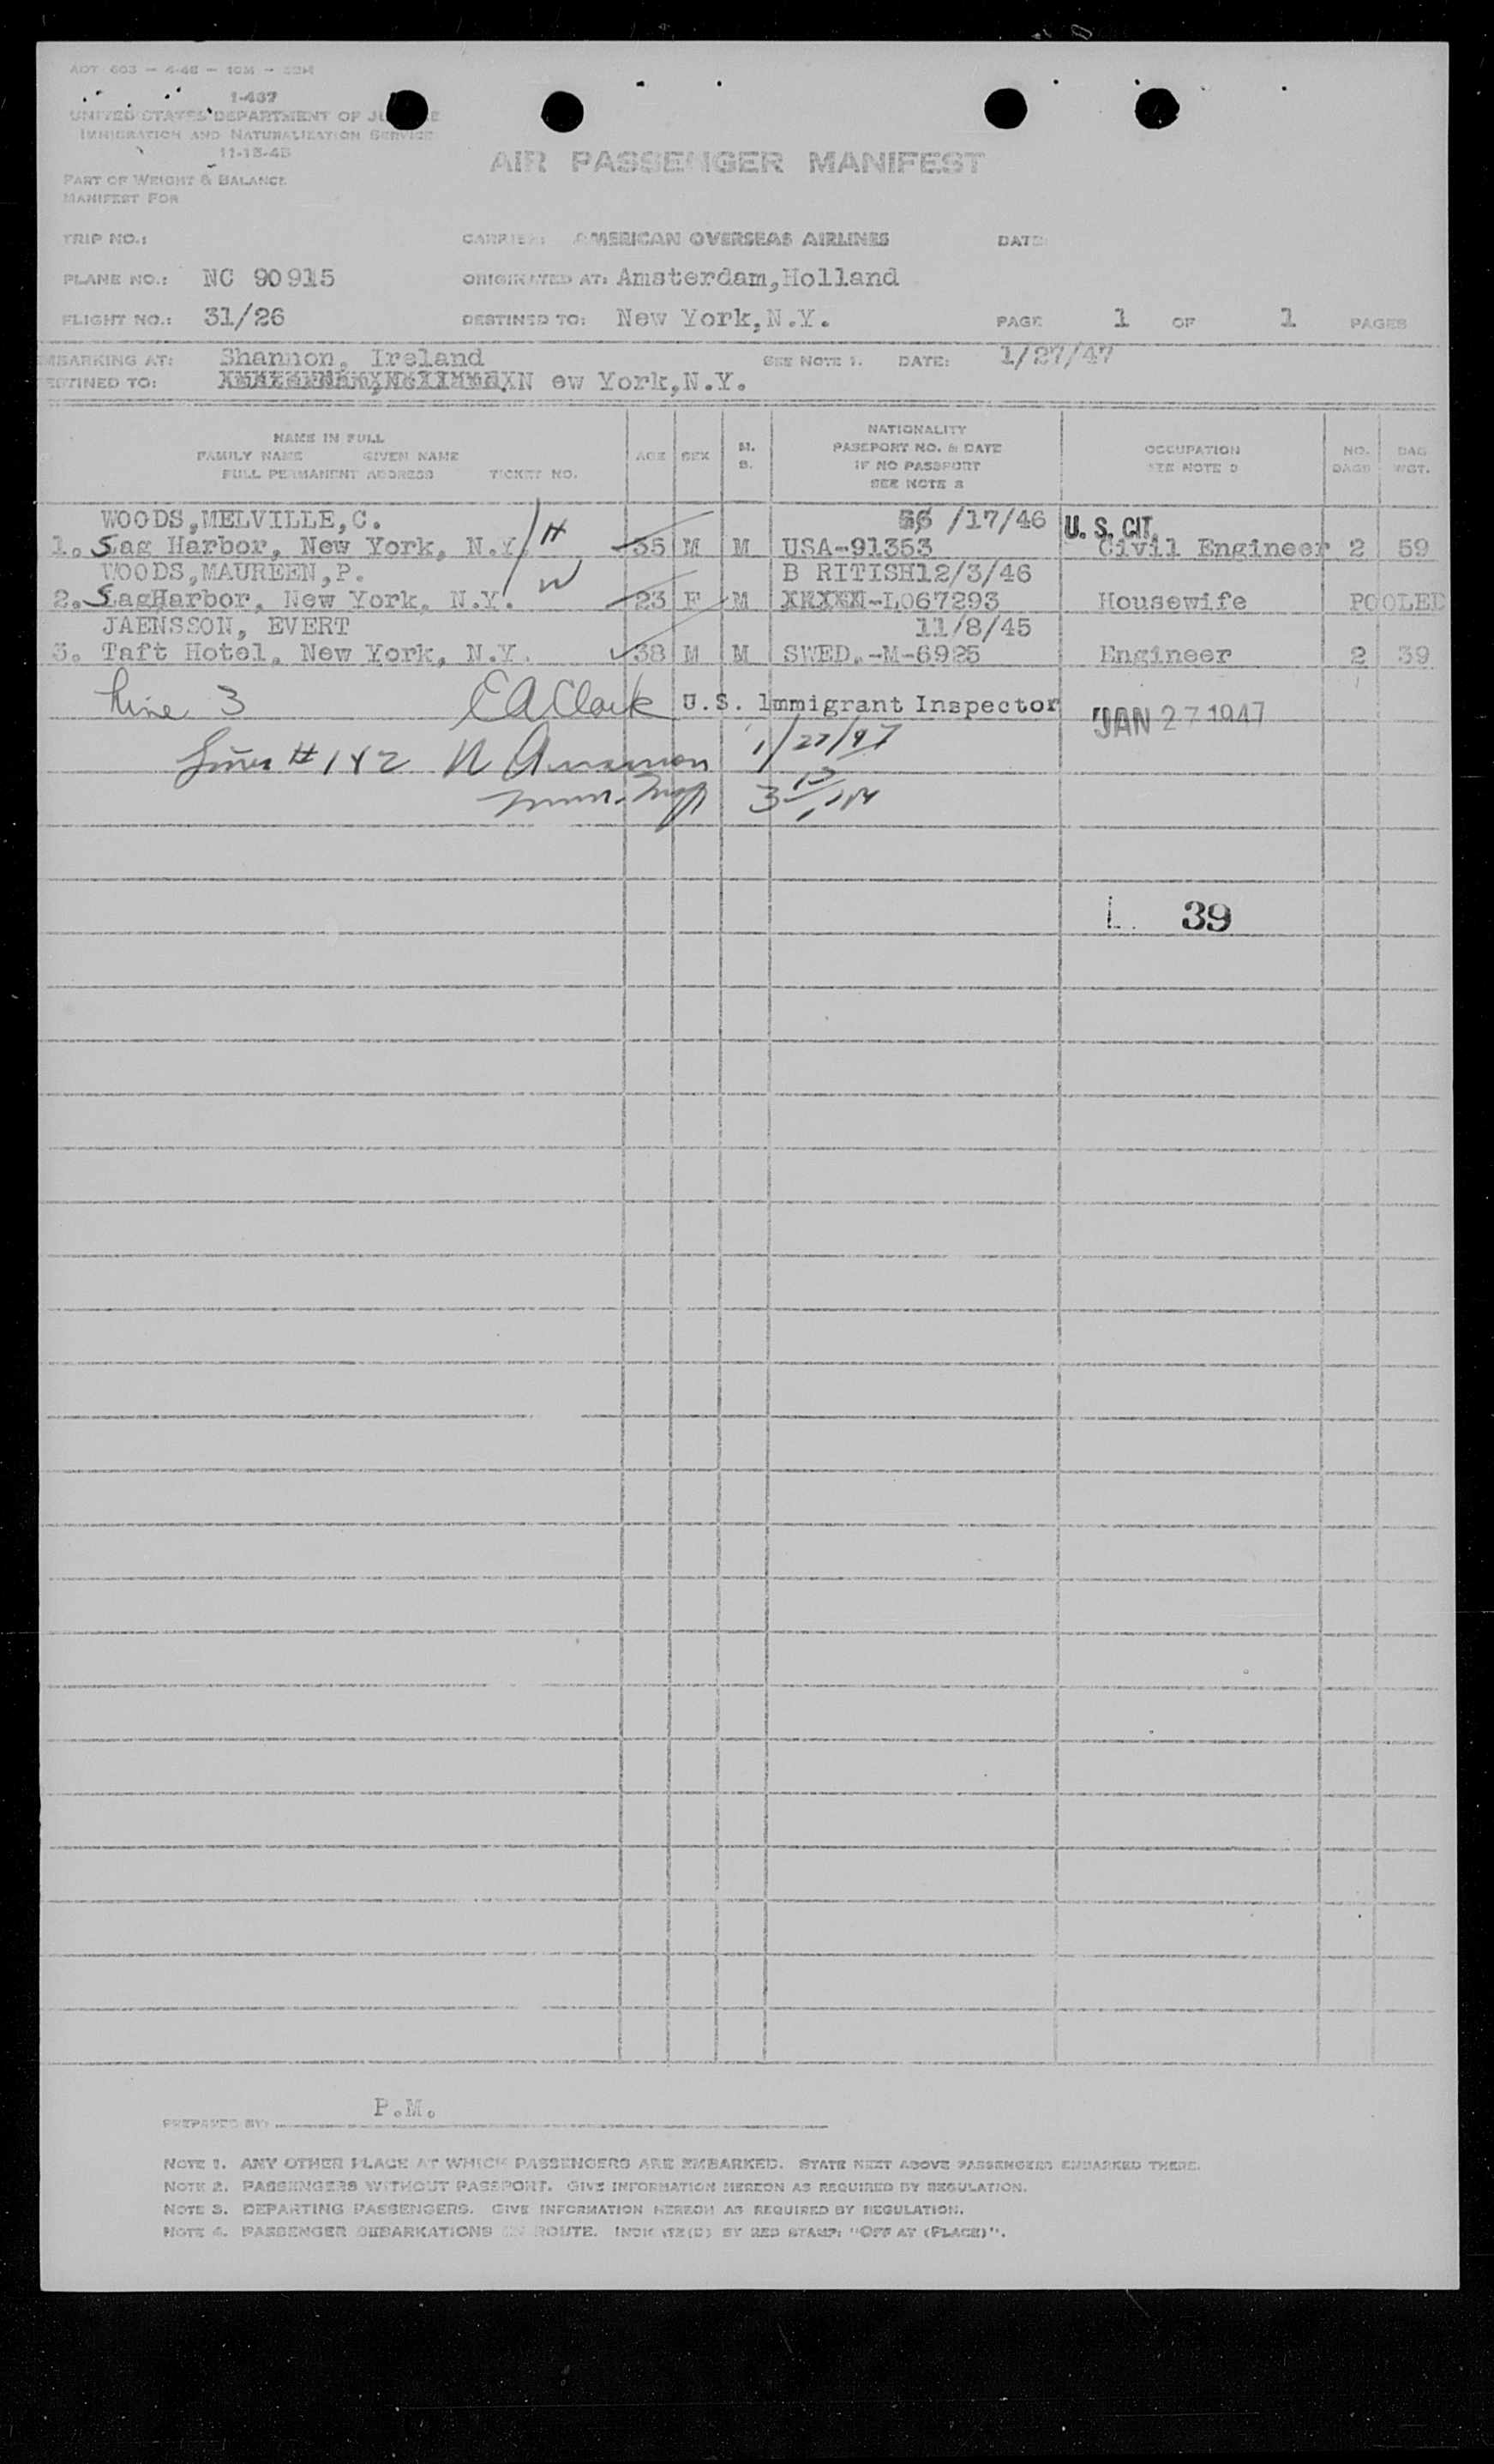 ADT 603 - 4-46 - 10M - SBM
1-437
UNITED STATES DEPARTMENT OF JU E
IMMIGRATION AND NATURALIZATION SERVICE
11-15-45
AIR PASSENGER MANIFEST
PART OF WEIGHT & BALANCE
MANIFEST FOR
TRIP NO.: CARRIER: AMERICAN OVERSEAS AIRLINES DATE:
PLANE NO.: NC 90915 ORIGINATED AT: Amsterdam,Holland
FLIGHT NO.: 31/26 DESTINED TO: New York,N.Y. PAGE 1 OF 1 PAGES
MBARKING AT: Shannon, Ireland SEE NOTE 1. DATE: 1/27/47
ESTINED TO: N ew York,N.Y.
NAME IN FULL
FAMILY NAME GIVEN NAME
FULL PERMANENT ADDRESS TICKET NO.
AGE SEX M. S.
NATIONALITY
PASSPORT NO. & DATE
IF NO PASSPORT
SEE NOTE 2
OCCUPATION
SEE NOTE 3
NO. BAGS BAG WGT.
WOODS,MELVILLE,C. /17/46 U. S. CIT.
1. Sag Harbor, New York, N.Y. H 35 M M USA-91353 Civil Engineer 2 59
WOODS,MAUREEN,P. W B RITISH12/3/46
2. SagHarbor, New York, N.Y. 23 F M -L067293 Housewife POOLED
JAENSSON, EVERT 11/8/45
3. Taft Hotel, New York, N.Y. 38 M M SWED.-M-6925 Engineer 2 39
Line 3 E A Clark U.S. Immigrant Inspector JAN 27 1947
Lines # 1 & 2 1/27/47
L 39
PREPARED BY: P.M.
NOTE 1. ANY OTHER PLACE AT WHICH PASSENGERS ARE EMBARKED. STATE NEXT ABOVE PASSENGERS EMBARKED THERE.
NOTE 2. PASSENGERS WITHOUT PASSPORT. GIVE INFORMATION HEREON AS REQUIRED BY REGULATION.
NOTE 3. DEPARTING PASSENGERS. GIVE INFORMATION HEREON AS REQUIRED BY REGULATION.
NOTE 4. PASSENGER DEBARKATIONS EN ROUTE. INDICATE(D) BY RED STAMP: "OFF AT (PLACE)".